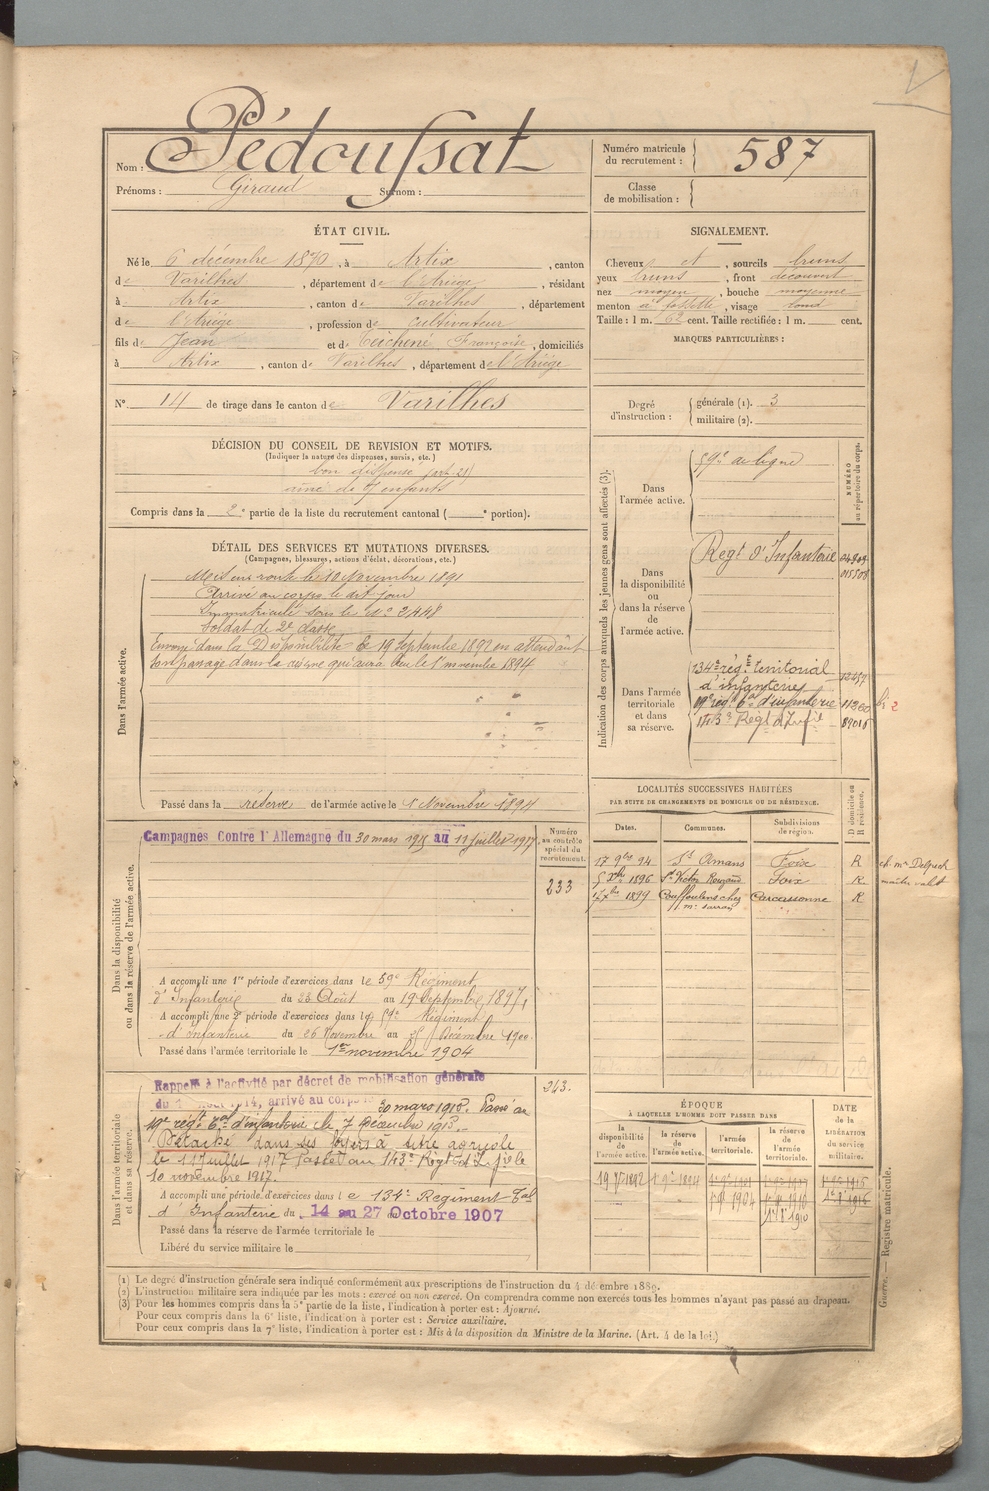 Nom : Pédoussat
Prénoms : Giraud Surnom :
Numéro matricule du recrutement : 587
Classe de mobilisation :
ÉTAT CIVIL.
Né le 6 décembre 1870, à Artix, canton
de Varilhes, département de l'Ariège, résidant
à Artix, canton de Varilhes, département
de l'Ariège, profession de cultivateur
fils de Jean et de Teichené Françoise, domiciliés
à Artix, canton de Varilhes, département de l'Ariège
N° 14 de tirage dans le canton de Varilhes
SIGNALEMENT.
Cheveux et, sourcils bruns
yeux bruns, front découvert
nez moyen, bouche moyenne
menton à fossette, visage rond
Taille : 1 m. 62 cent. Taille rectifiée : 1 m. cent.
MARQUES PARTICULIÈRES :
Degré d'instruction : générale (1). 3
militaire (2).
DÉCISION DU CONSEIL DE REVISION ET MOTIFS.
(Indiquer la nature des dispenses, sursis, etc.)
bon dispensé (art. 21)
aîné de 7 enfants
Compris dans la 2e partie de la liste du recrutement cantonal ( e portion).
DÉTAIL DES SERVICES ET MUTATIONS DIVERSES.
(Campagnes, blessures, actions d'éclat, décorations, etc.)
Dans l'armée active.
Mis en route le 10 Novembre 1891
Arrivé au corps le dit jour
Immatriculé sous le n° 2448
Soldat de 2e classe
Envoyé dans la Disponibilité le 19 Septembre 1892 en attendant
son passage dans la réserve qui aura lieu le 1er novembre 1894
Passé dans la réserve de l'armée active le 1er Novembre 1894
Indication des corps auxquels les jeunes gens sont affectés (3).
NUMÉRO au répertoire du corps.
Dans l'armée active.
59e de ligne
Dans la disponibilité ou dans la réserve de l'armée active.
Regt d'Infanterie
Dans l'armée territoriale et dans sa réserve.
134e rég.t territorial
d'infanterie
19e régt tal d'infanterie
143e Régt d'Inf.ie
LOCALITÉS SUCCESSIVES HABITÉES
PAR SUITE DE CHANGEMENTS DE DOMICILE OU DE RÉSIDENCE.
Dates. Communes. Subdivisions de région. D domicile ou R résidence.
17 9bre 94. St Amans Foix R ch. Mr Delpech
5 Xbre 1896 St Victor Rouzaud Foix R. maître valet
1899 Couffoulens chez Mr Sarran Carcassonne R
Dans la disponibilité ou dans la réserve de l'armée active.
Campagnes Contre l'Allemagne du 30 mars 1915 au 11 juillet 1917
Numéro au contrôle spécial du recrutement.
233
A accompli une 1re période d'exercices dans le 59e Régiment
d'Infanterie du 23 Août au 19 Septembre 1897,
A accompli une 2e période d'exercices dans le 59e Régiment
d'Infanterie du 26 Novembre au Décembre 1900
Passé dans l'armée territoriale le 1er novembre 1904
Dans l'armée territoriale et dans sa réserve.
Rappelé à l'activité par décret de mobilisation générale
du 1 août 1914, arrivé au corps le 30 mars 1915. Passé au
19e régt tal d'infanterie le 7 Décembre 1915.
Détaché dans ses foyers à titre agricole
le 11 juillet 1917 Passé au 143e Régt d'I. fie le
10 novembre 1917.
243.
A accompli une période d'exercices dans le 134e Régiment Tal
d'Infanterie du 14 au 27 Octobre 1907
Passé dans la réserve de l'armée territoriale le
Libéré du service militaire le
ÉPOQUE
À LAQUELLE L'HOMME DOIT PASSER DANS
la disponibilité de l'armée active. la réserve de l'armée active. l'armée territoriale. la réserve de l'armée territoriale.
DATE de la LIBÉRATION du service militaire.
1er 9bre 1894
1904
1910
1916
Guerre. — Registre matricule.
(1) Le degré d'instruction générale sera indiqué conformément aux prescriptions de l'instruction du 4 décembre 1889.
(2) L'instruction militaire sera indiquée par les mots : exercé ou non exercé. On comprendra comme non exercés tous les hommes n'ayant pas passé au drapeau.
(3) Pour les hommes compris dans la 5e partie de la liste, l'indication à porter est : Ajourné.
Pour ceux compris dans la 6e liste, l'indication à porter est : Service auxiliaire.
Pour ceux compris dans la 7e liste, l'indication à porter est : Mis à la disposition du Ministre de la Marine. (Art. 4 de la loi.)